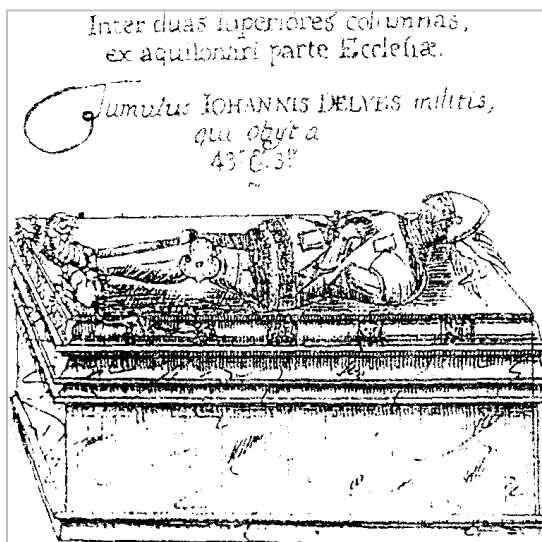 Inter duas ſuperiores columnas,
ex aquilonari parte Eccleſiæ.
Tumulus IOHANNIS DELVES militis,
qui obyt a
43º E. 3ij